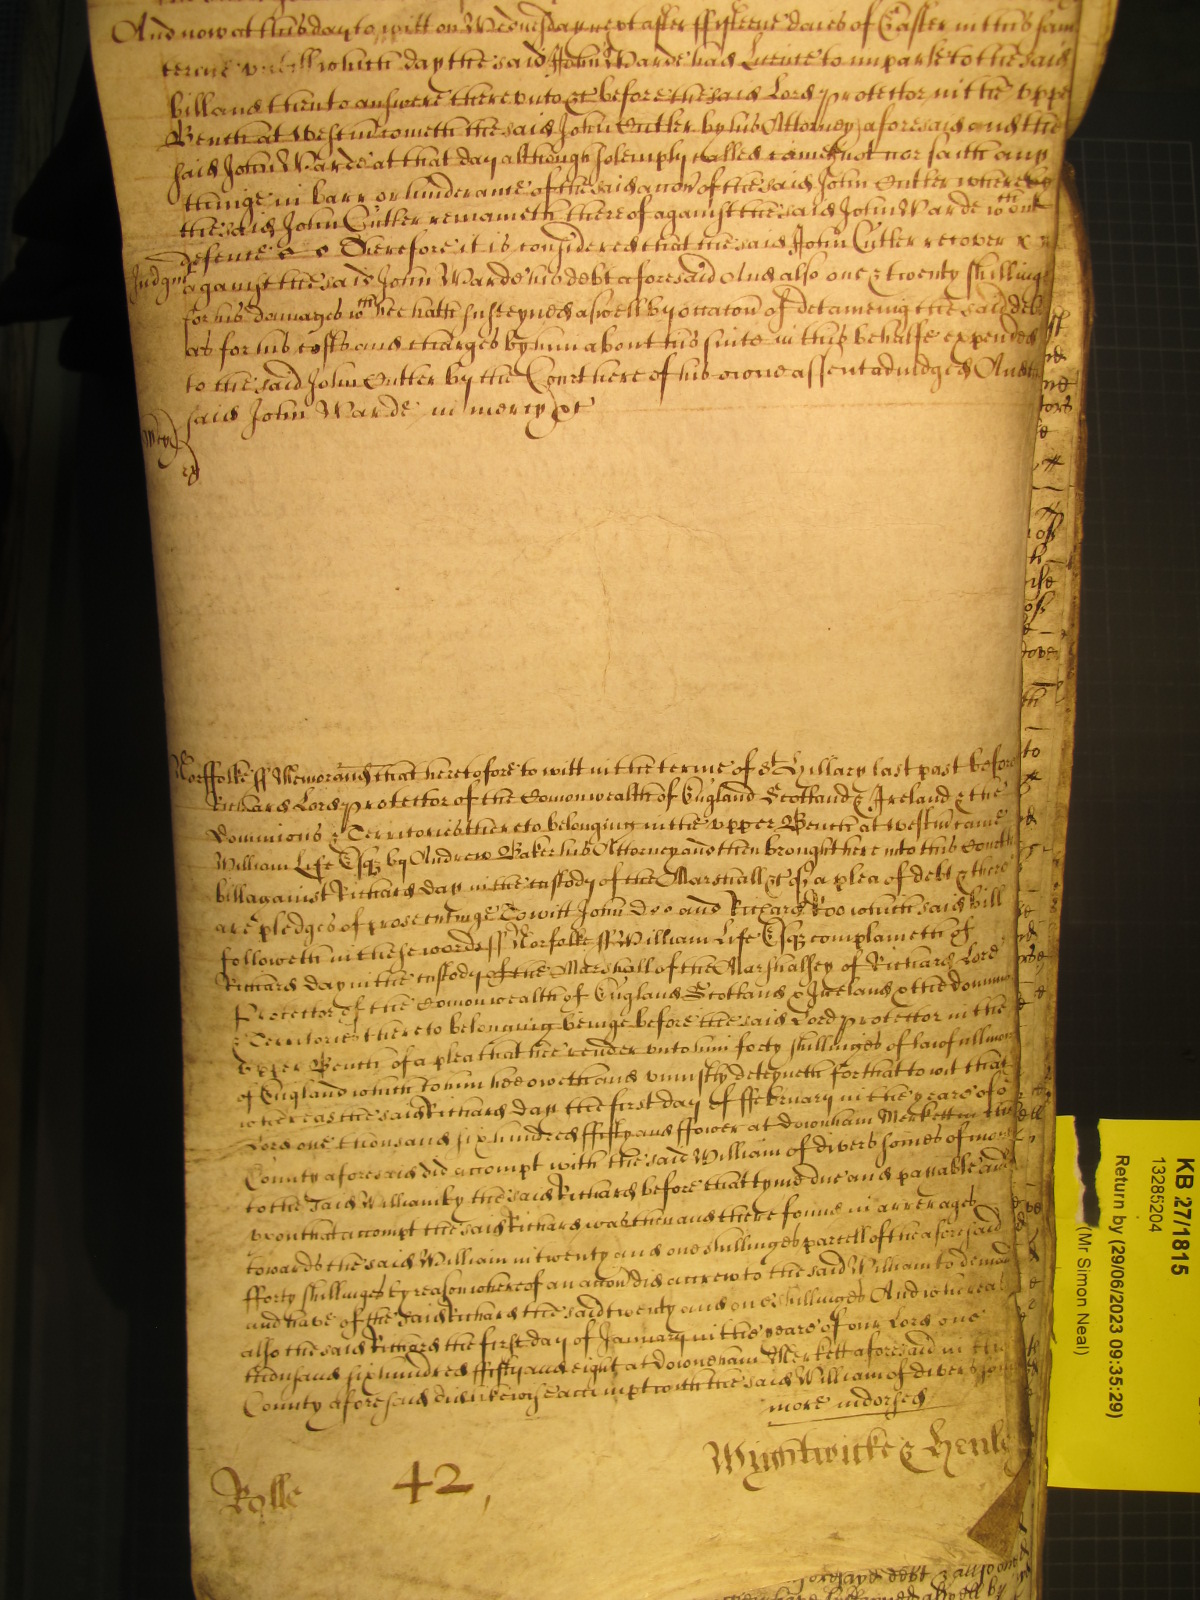 And now at this day to witt on Wednesday next after fifteene daies of Easter in this same
terme untill which day the said John Warde had Licence to imparle to the said
bill and then to answere thereunto &c before the said Lord Protector in the upper
Bench at Westm cometh the said John Cutler by his Attorney aforesaid and the
said John Warde at that day although solemply called came not nor saith any
thinge in barr or hinderance of the said accon of the said John Cutler whereby
the said John Cutler remaineth thereof against the said John Warde wthout
defence &c Therefore it is considered that the said John Cutler recover
Judgmt against the said John Warde his debt aforesaid And also one & twenty shillings
for his damages wch hee hath susteyned aswell by occacon of deteineing the said debt
as for his costs and charges by him about his suite in this behalfe expended
to the said John Cutler by the Court here of his owne assent adiudged And the
said John Warde in mercy &c
Mcy
Norffolke ss Memorand that heretofore to witt in the terme of St Hillary last past before
Richard Lord Protector of the Comonwealth of England Scotland & Ireland & the
Dominions & Territories thereto belonging in the upper Bench at westm came
William Life Esqz by Andrew Baker his Attorney and then brought here into this Court his
bill against Richard Day in the custody of the Marshall &c of a plea of debt & there
are pledges of prosecutinge To witt John Doe and Richard Roo which said bill
followeth in these words ss Norfolke ss William Life Esqz complaineth of
Richard Day in the custody of the Marshall of the Marshalsey of Richard Lord
Protector of the Comonwealth of England Scotland & Ireland & the Dominions
& Territories thereto belonging beinge before the said Lord Protector in the
upper Bench of a plea that hee render unto him forty shillinges of lawfull mony
of England which to him hee oweth and uniustly deteyneth For that to wit that
whereas the said Richard Day the first day of ffebruary in the yeare of our
Lord one thousand six hundred fifty and ffower at Downham Merkett in the
County aforesaid did accompt with the said William of divers somes of money
to the said William by the said Richard before that tyme due and payable and
upon that accompt the said Richard was then and there found in arrerages
towards the said William in twenty and one shillinges parcell of the aforesaid
fforty shillinges by reason whereof an accon did accrew to the said William to demand
and have of the said Richard the said twenty and one shillinges And whereas
also the said Richard the first day of January in the yeare of our Lord one
thousand six hundred fifty and eight at Downeham Merkett aforesaid in the
County aforesaid did likewise accompt with the said William of divers somes
more indorsed
Wightwicke & Henle
Rolle 42
aforesayd debt & also one
KB 27/1815
13285204
Return by (29/06/2023 09:35:29)
(Mr Simon Neal)